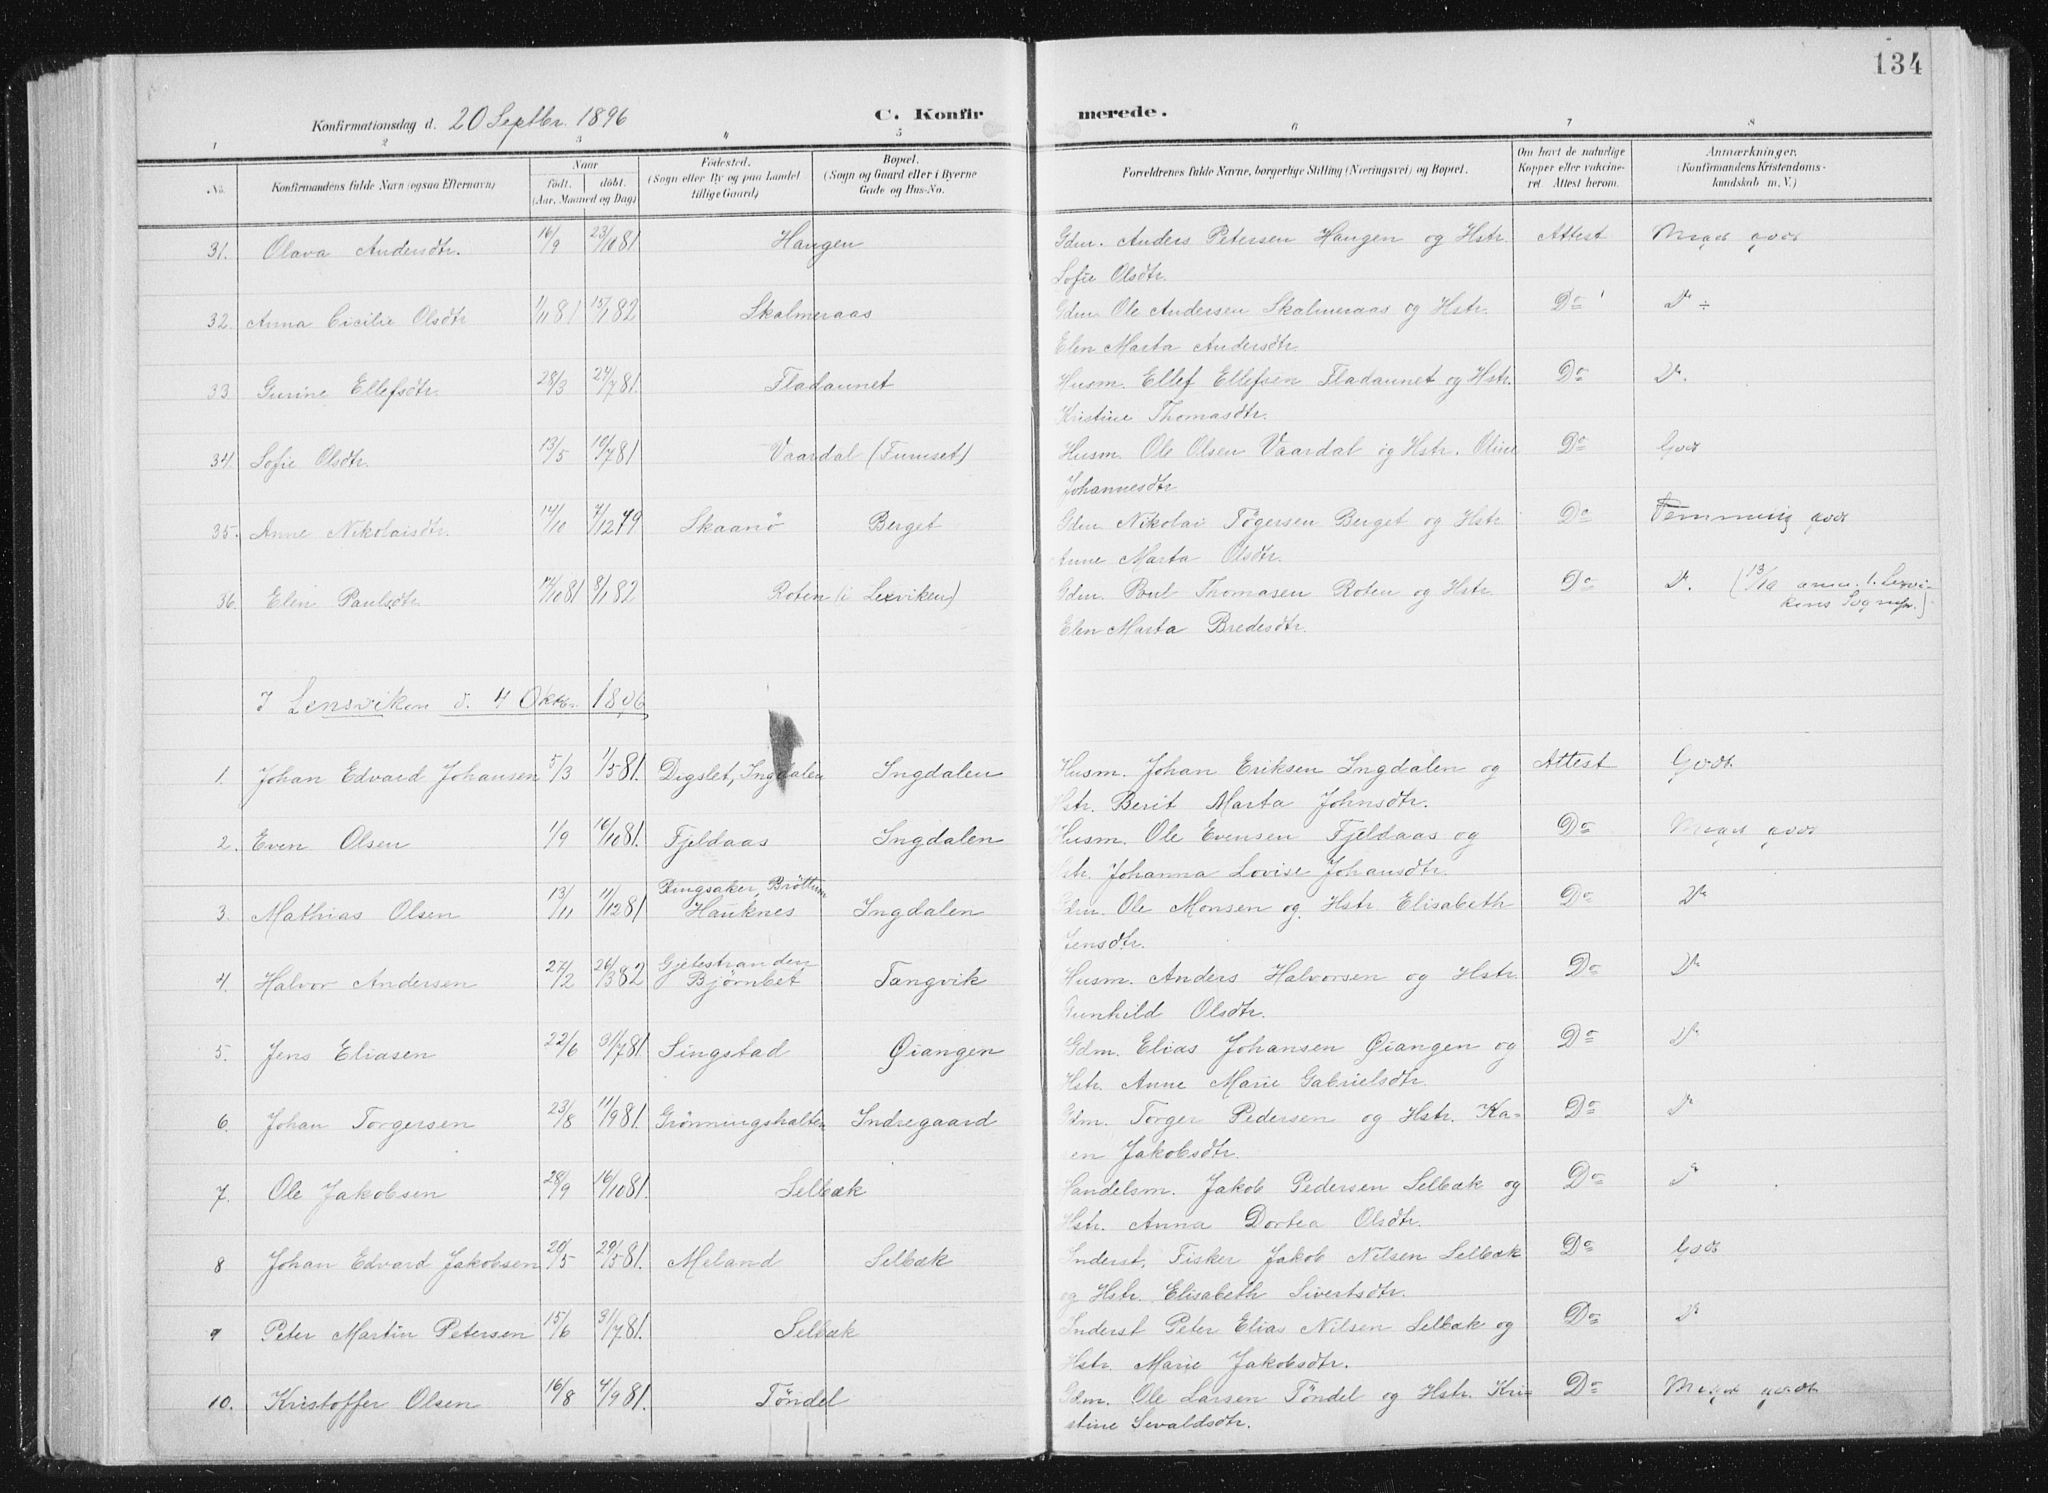 134
Konfirmationsdag d. 20 Septbr. 1896
C. Konfir
merede.
1 2 3 4 5 6 7 8
No.
Konfirmandens fulde Navn (ogsaa Efternavn)
Naar
født. døbt.
(Aar, Maaned og Dag)
Fødested.
(Sogn eller By og paa Landet
tillige Gaard)
Bopæl.
(Sogn og Gaard eller i Byerne
Gade og Hus-No.
Forældrenes fulde Navne, borgerlige Stilling (Næringsvei) og Bopæl.
Om havt de naturlige
Kopper eller vakcine-
ret Attest herom.
Anmærkninger.
(Konfirmandens Kristendoms-
kundskab m. V.)
31. Olava Andersdtr. 16/9 23/10 81 Haugen Gdm. Anders Petersen Haugen og Hstr. Attest Meget godt
Sofie Olsdtr.
32. Anna Cicilie Olsdtr 1/11 81 15/1 82 Skalmeraas Gdm. Ole Andersen Skalmeraas og Hstr. Do Do ÷
Elen Marta Andersdtr.
33 Gurine Ellefsdtr. 28/3 24/7 81. Fladaunet Husm. Ellef Ellefsen Fladaunet og Hstr. Do Do.
Kristine Thomasdtr.
34. Sofie Olsdtr. 13/5 10/7 81 Vaardal (Furuset) Husm. Ole Olsen Vaardal og Hstr. Oline Do Godt
Johannesdtr
35. Anne Nikolaisdtr. 14/10 7/12 79 Skaanø Berget Gdm. Nikolai Tøgersen Berget og Hstr. Do Temmelig godt
Anne Marta Olsdtr.
36. Elen Paulsdtr. 17/10 81 8/1 82 Roten (i Lexviken) Gdm. Paul Thomasen Roten og Hstr. Do Do. (13/10 anm. t. Lexvi-
kens Sognepr.)
Elen Marta Bredesdtr.
I Lensviken d. 4 Oktbr. 1896
1. Johan Edvard Johansen 5/3 1/5 81. Digslet, Ingdalen Ingdalen Husm. Johan Eriksen Ingdalen og Attest Godt.
Hstr. Berit Marta Johnsdtr.
2. Even Olsen 1/9 16/10 81. Fjeldaas Ingdalen Husm. Ole Evensen Fjeldaas og Do Meget godt
Hstr. Johanna Lovise Johansdtr.
Ringsaker, Brøttum
3. Mathias Olsen 13/11 11/12 81 Hauknes Ingdalen Gdm. Ole Monsen og Hstr. Elisabeth Do Do
Jensdtr.
Gjetestranden
4. Halvor Andersen 27/2 26/3 82 Bjørnbet Tangvik Husm. Anders Halvorsen og Hstr. Do Do
Gunhild Olsdtr.
5. Jens Eliasen 22/6 31/7 81. Singstad Øiangen Gdm. Elias Johansen Øiangen og Do Do
Hstr. Anne Marie Gabrielsdtr.
6. Johan Torgersen 23/8 11/9 81. Grønningshalten Indregaard Gdm. Torger Pedersen og Hstr. Ka- Do Do
en Jakobsdtr.
7. Ole Jakobsen 28/9 16/10 81. Selbæk Handelsm. Jakob Pedersen Selbæk og Do Do
Hstr. Anna Dortea Olsdtr.
8 Johan Edvard Jakobsen 20/5 29/5 81. Meland Selbæk Inderst, Fisker Jakob Nilsen Selbæk Do Godt
og Hstr. Elisabeth Sivertsdtr.
9 Peter Martin Petersen 15/6 31/7 81. Selbæk Inderst Peter Elias Nilsen Selbæk og Do Do
Hstr. Marie Jakobsdtr.
10. Kristoffer Olsen 16/8 4/9 81. Tøndel Gdm. Ole Larsen Tøndel og Hstr. Kri- Do Meget godt
stine Sevaldsdtr.